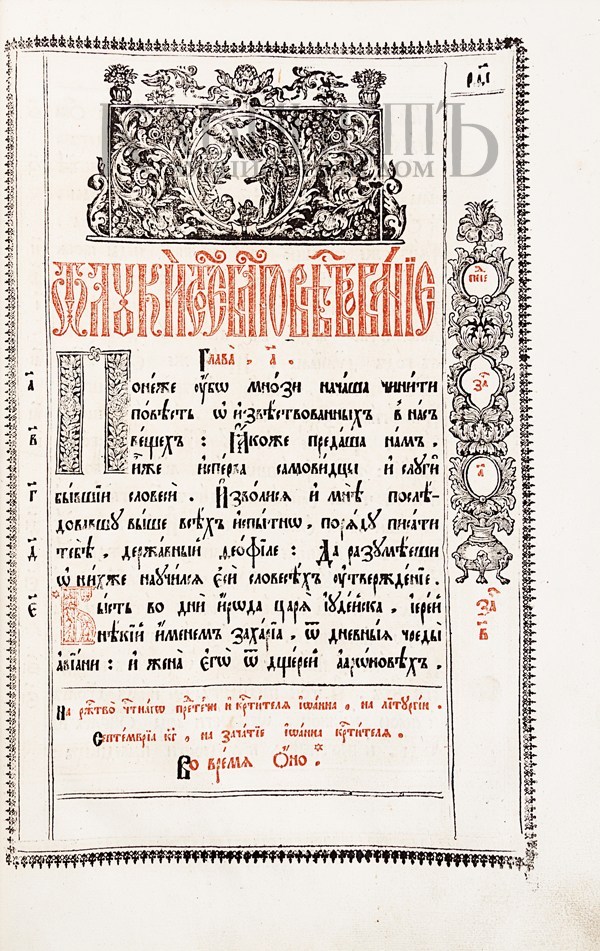 ѿ лꙋки́ ст҃о́е бл҃говѣствова́нїе
Глава̀, а҃.
Поне́же ᲂу҆́бѡ мно́зи нача́ша чини́ти
по́вѣсть ѡ҆ и҆звѣ́ствованныхъ въ на́съ
ве́щехъ : Ꙗ҆́коже преда́ша на́мъ,
и҆̀же и҆спе́рва самови́дцы и҆ слꙋги̂
бы́вшїи словесѝ. И҆зво́лисѧ и҆ мнѣ̀ послѣ́-
довавшꙋ вы́ше всѣ́хъ и҆спы́тнѡ, по рѧ́дꙋ писа́ти
тебѣ̀, держа́вный ѳео́фїле : Да разꙋмѣ́еши
ѡ҆ ни́хже наꙋчи́лсѧ є҆сѝ словесѣ́хъ ᲂу҆твержде́нїе.
Бы́сть во дни̑ и҆́рѡда царѧ̀ і҆ꙋде́йска, і҆ере́й
нѣ́кїй и҆́менемъ заха́рїа, ѿ дне́вныѧ чреды̀
а҆вїа́ни : и҆ жена̀ є҆гѡ̀ ѿ дще́рей а҆арѡ́новѣхъ,
а҃
в҃
г҃
д҃
є҃
за҃
а҃
за҃
в҃
На ржⷭ҇тво̀ чⷭ҇тна́гѡ прⷣте́чи и҆ крⷭ҇ти́телѧ і҆ѡа́нна, на лїтꙋргі́и.
Септе́мврїа к҃г, на зача́тїе і҆ѡа́нна крⷭ҇ти́телѧ.
Во вре́мѧ Ѻ҆́но.